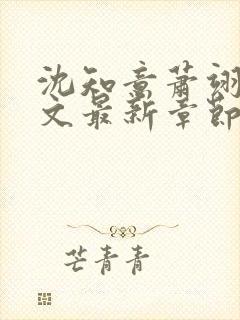 沈知意萧翊
文最新章节
芒青青